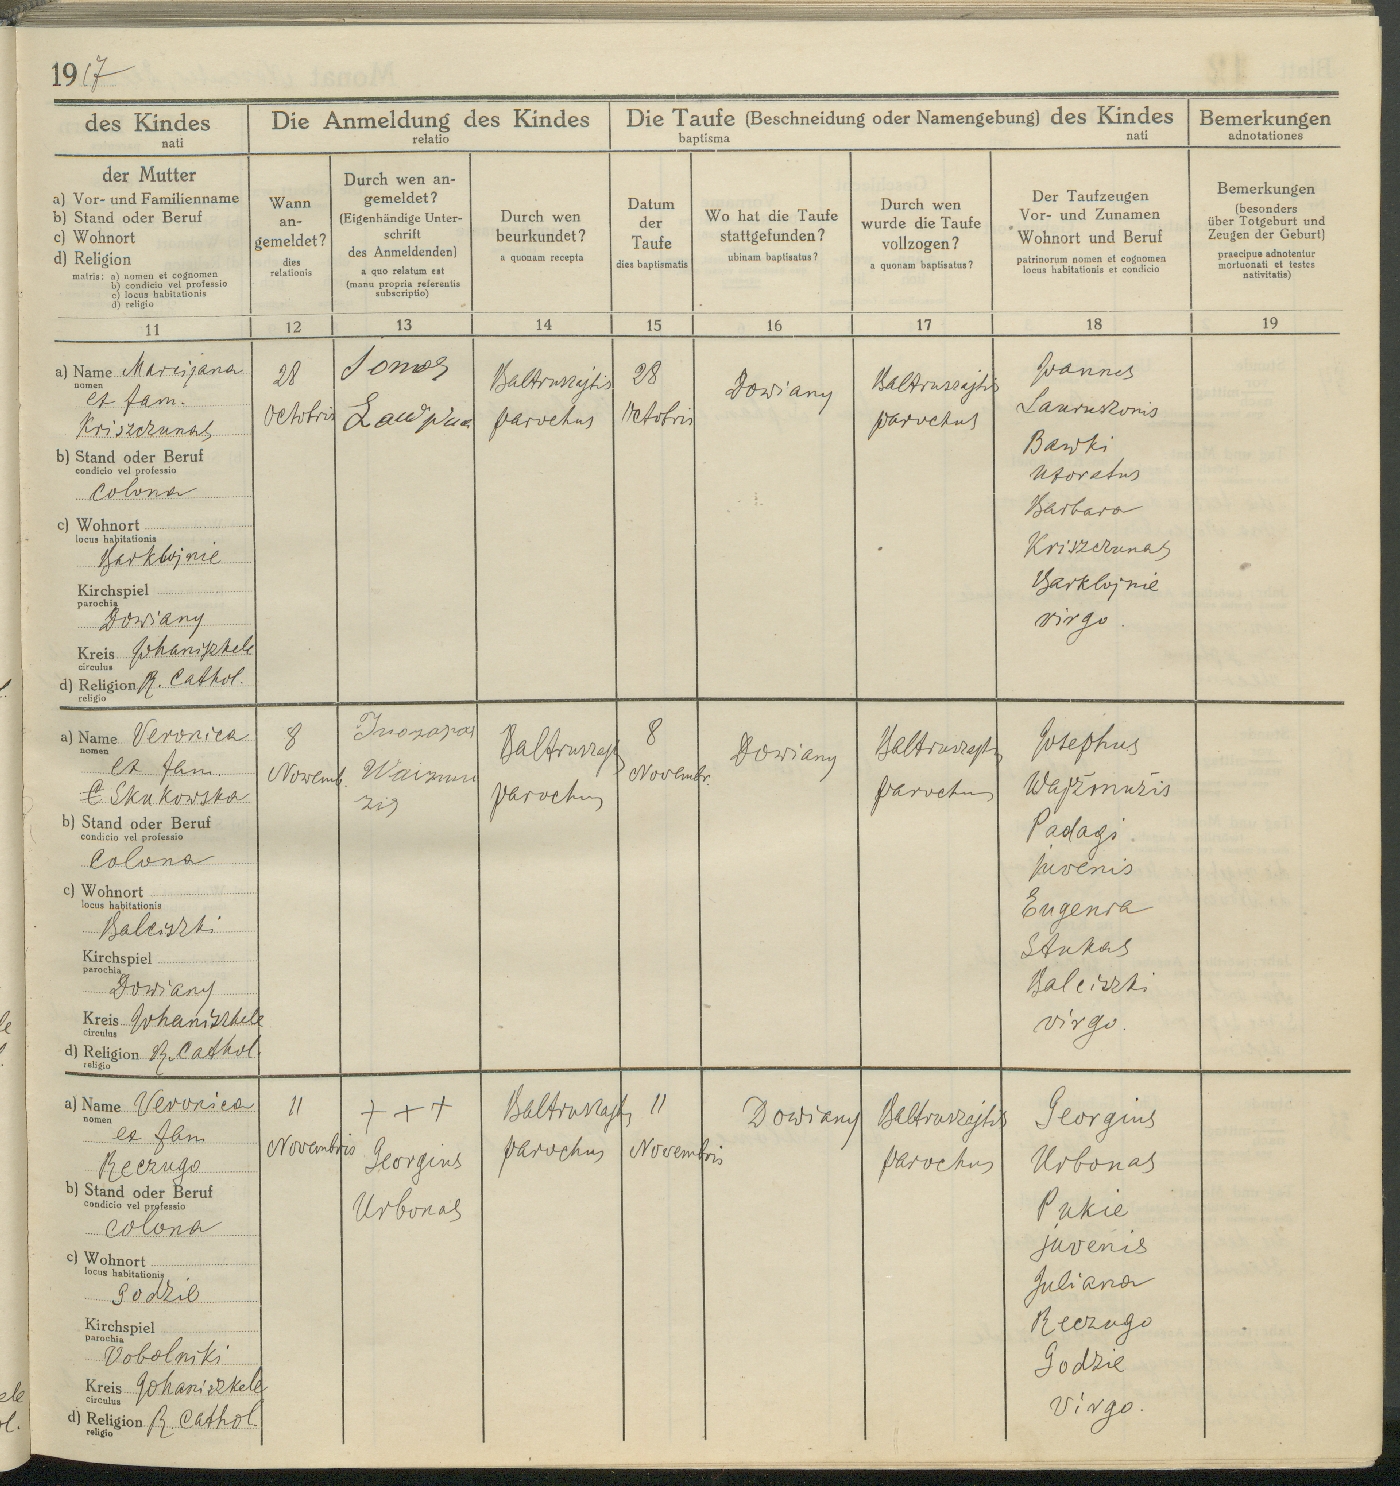 1917
des Kindes
nati
Die Anmeldung des Kindes
relatio
Die Taufe (Beschneidung oder Namengebung) des Kindes
baptisma nati
Bemerkungen
adnotationes
der Mutter
a) Vor- und Familienname
b) Stand oder Beruf
c) Wohnort
d) Religion
matris: a) nomen et cognomen
b) condicio vel professio
c) locus habitationis
d) religio
Wann
an-
gemeldet?
dies
relationis
Durch wen an-
gemeldet?
(Eigenhändige Unter-
schrift
des Anmeldenden)
a quo relatum est
(manu propria referentis
subscriptio)
Durch wen
beurkundet?
a quonam recepta
Datum
der
Taufe
dies baptismatis
Wo hat die Taufe
stattgefunden?
ubinam baptisatus?
Durch wen
wurde die Taufe
vollzogen?
a quonam baptisatus?
Der Taufzeugen
Vor- und Zunamen
Wohnort und Beruf
patrinorum nomen et cognomen
locus habitationis et condicio
Bemerkungen
(besonders
über Totgeburt und
Zeugen der Geburt)
praecipue adnotentur
mortuonati et testes
nativitatis)
11 12 13 14 15 16 17 18 19
a) Name Marcijana
nomen
et fam.
Kriszczunas
b) Stand oder Beruf
condicio vel professio
colona
c) Wohnort
locus habitationis
Barklojnie
Kirchspiel
parochia
Dowiany
Kreis Johaniszkele
circulus
d) Religion R. Cathol.
religio
28
Octobris
Baltruszajtis
parochus
28
Octobris
Dowiany
Baltruszajtis
parochus
Joannes
Lauruszonis
Bawki
Uxoratus
Barbara
Kriszczunas
Barklojnie
virgo.
a) Name Veronica
nomen
et fam.
Skukowska
b) Stand oder Beruf
condicio vel professio
Colona
c) Wohnort
locus habitationis
Balciszki
Kirchspiel
parochia
Dowiany
Kreis Johaniszkele
circulus
d) Religion R. Cathol.
religio
8
Novemb.
Waizmu
zis
Baltruszajtis
parochus
8
Novembr.
Dowiany
Baltruszajtis
parochus
Josephus
Wajżmużis
Padagi
juvenis
Eugenia
Stukas
Balciszki
virgo.
a) Name Veronica
nomen
et fam
Reczugo
b) Stand oder Beruf
condicio vel professio
colona
c) Wohnort
locus habitationis
Godzie
Kirchspiel
parochia
Vobolniki
Kreis Johaniszkele
circulus
d) Religion R. Cathol.
religio
11
Novembris
+++
Georgius
Urbonas
Baltruszajtis
parochus
11
Novembris
Dowiany
Baltruszajtis
parochus
Georgius
Urbonas
Pukie
juvenis
Juliana
Reczugo
Godzie
virgo.